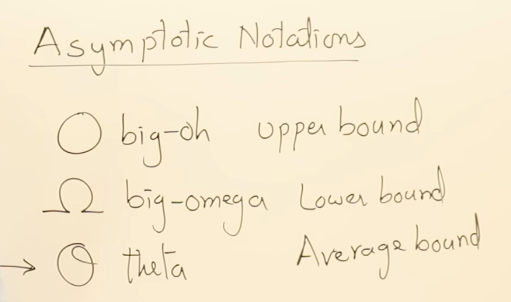 Asymptotic Notations
O big-oh upper bound
Ω big-omega Lower bound
→ Θ theta Average bound